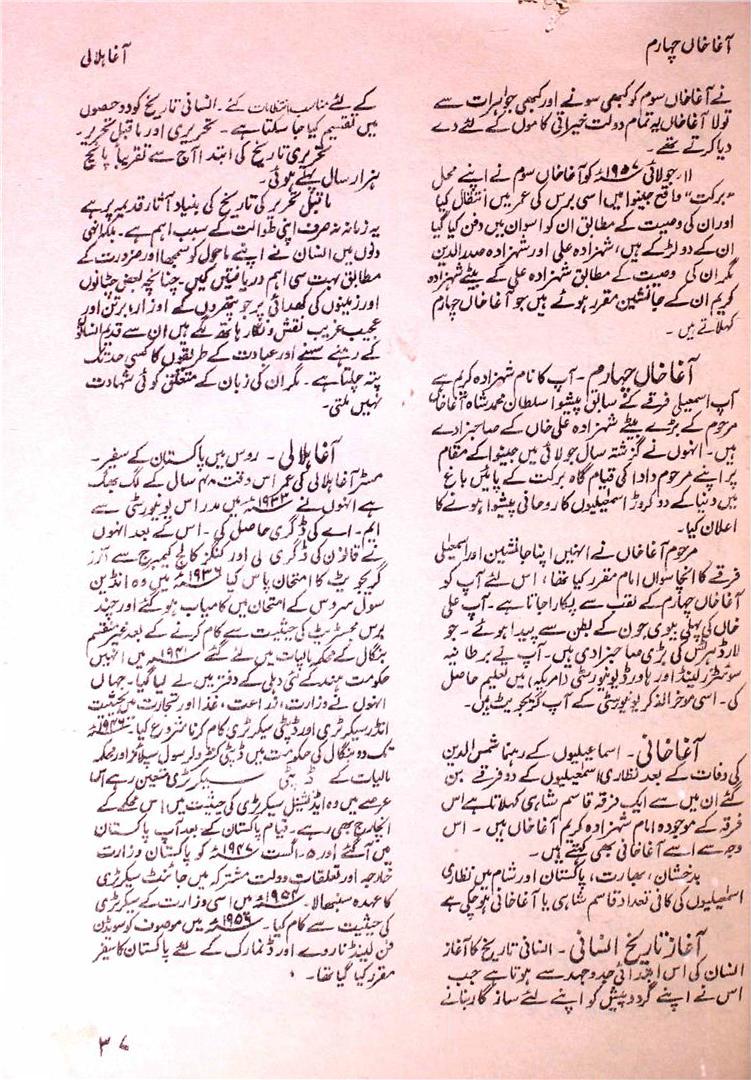 آغا خاں چہارم
آغا ہلالی
نے آغا خاں سوم کو کبھی سونے اور کبھی جواہرات سے
تولا آغا خاں یہ تمام دولت خیراتی کاموں کے لئے دے
دیا کرتے تھے۔
۱۱ر جولائی ۱۹۵۷ء کو آغا خاں سوم نے اپنے محل
”برکت“ واقع جینوا میں اسی برس کی عمر میں انتقال کیا
اور ان کی وصیت کے مطابق ان کو اسوان میں دفن کیا گیا
ان کے دو لڑکے ہیں، شہزادہ علی اور شہزادہ صدر الدین
مگر ان کی وصیت کے مطابق شہزادہ علی کے بیٹے شہزادہ
کریم ان کے جانشین مقرر ہوئے ہیں جو آغا خاں چہارم
کہلاتے ہیں۔
آغا خاں چہارم۔ آپ کا نام شہزادہ کریم ہے
آپ اسمعیلی فرقے کے سابق پیشوا سلطان محمد شاہ آغا خاں
مرحوم کے بڑے بیٹے شہزادہ علی خاں کے صاحبزادے
ہیں۔ انہوں نے گزشتہ سال جولائی میں جینوا کے مقام
پر اپنے مرحوم دادا کی قیام گاہ برکت کے پائیں باغ
میں دنیا کے دو کروڑ اسمعیلیوں کا روحانی پیشوا ہونے کا
اعلان کیا۔
مرحوم آغا خاں نے انہیں اپنا جانشین اور اسمعیلی
فرقے کا انچاسواں امام مقرر کیا تھا، اس لئے آپ کو
آغا خاں چہارم کے لقب سے پکارا جاتا ہے۔ آپ علی
خاں کی پہلی بیوی جون کے بطن سے پیدا ہوئے۔ جو
لارڈ کی بڑی صاحبزادی ہیں۔ آپ نے برطانیہ
سوئٹزرلینڈ اور ہارورڈ یونیورسٹی (امریکہ) میں تعلیم حاصل
کی۔ اسی موخر الذکر یونیورسٹی کے آپ گریجویٹ ہیں۔
آغا خانی۔ اسماعیلیوں کے رہنما شمس الدین
کی وفات کے بعد نظاری اسمعیلیوں کے دو فرقے بن
گئے ان میں سے ایک فرقہ قاسم شاہی کہلاتا ہے اس
فرقہ کے موجودہ امام شہزادہ کریم آغا خاں ہیں۔ اس
وجہ سے اسے آغا خانی بھی کہتے ہیں۔
بدخشان، بھارت، پاکستان اور شام میں نظاری
اسمعیلیوں کی کافی تعداد قاسم شاہی یا آغا خانی ہو چکی ہے
آغاز تاریخ انسانی۔ انسانی تاریخ کا آغاز
انسان کی اس ابتدائی جدوجہد سے ہوتا ہے جب
اس نے اپنے گرد و پیش کو اپنے لئے سازگار بنانے
کے لئے مناسب انتظامات کئے۔ انسانی تاریخ کو دو حصوں
میں تقسیم کیا جا سکتا ہے۔ تحریری اور ماقبل تحریر۔
تحریری تاریخ کی ابتدا آج سے تقریباً پانچ
ہزار سال پہلے ہوئی۔
ماقبل تحریر کی تاریخ کی بنیاد آثار قدیمہ پر ہے
یہ زمانہ نہ صرف اپنی طوالت کے سبب اہم ہے۔ بلکہ انہی
دنوں میں انسان نے اپنے ماحول کو سمجھا اور ضرورت کے
مطابق بہت سی اہم دریافتیں کیں۔ چنانچہ بعض چٹانوں
اور زمینوں کی کھدائی پر جو پتھروں کے اوزار، برتن اور
عجیب عزیب نقش و نگار ہاتھ لگے ہیں ان سے قدیم انسانوں
کے رہنے سہنے اور عبادت کے طریقوں کا کسی حد تک
پتہ چلتا ہے۔ مگر ان کی زبان کے متعلق کوئی شہادت
نہیں ملتی۔
آغا ہلالی۔ روس میں پاکستان کے سفیر۔
مسٹر آغا ہلالی کی عمر اس وقت ۴۸ سال کے لگ بھگ
ہے انہوں نے ۱۹۳۳ء میں مدراس یونیورسٹی سے
ایم۔ اے کی ڈگری حاصل کی۔ اس کے بعد انہوں
نے قانون کی ڈگری لی اور کنگز کالج کیمبرج سے آنرز
گریجویٹ کا امتحان پاس کیا ۱۹۳۶ء میں وہ انڈین
سول سروس کے امتحان میں کامیاب ہو گئے اور چند
برس مجسٹریٹ کی حیثیت سے کام کرنے کے بعد غیر منقسم
بنگال کے محکمہ مالیات میں لئے گئے ۱۹۴۱ء میں انہیں
حکومت ہند کے نئی دہلی کے دفتر میں لے لیا گیا۔ جہاں
انہوں نے وزارت زراعت، غذا اور تجارت میں بحیثیت
انڈر سیکرٹری اور ڈپٹی سیکرٹری کام کرنا شروع کیا۔ ۱۹۴۶ء
تک وہ بنگال کی حکومت میں ڈپٹی کنٹرولر سول سپلائز اور محکمہ
مالیات کے ڈپٹی سیکرٹری متعین رہے اسی
عرصے میں وہ ایڈیشنل سیکریٹری کی حیثیت میں اس محکمے کے
انچارج بھی رہے۔ قیام پاکستان کے بعد آپ پاکستان
میں آ گئے اور ۵۔ اگست ۱۹۴۷ء کو پاکستان وزارت
خارجہ اور تعلقات دولت مشترکہ میں جائنٹ سیکرٹری
کا عہدہ سنبھالا۔ ۱۹۵۴ء میں اسی وزارت کے سیکرٹری
کی حیثیت سے کام کیا۔ ۱۹۵۶ء میں موصوف کو سویڈن
فن لینڈ ناروے اور ڈنمارک کے لئے پاکستان کا سفیر
مقرر کیا گیا تھا۔
۳۷